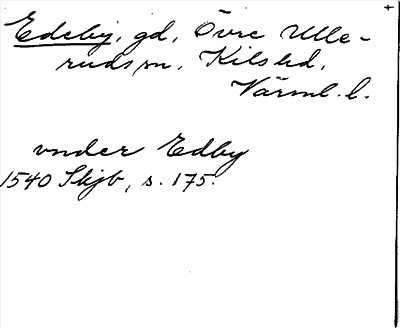 Edeby, gd, Övre Ulle-
rudssn, Kils hd,
Värml. l.
vnder Edby
1540 Skjb, s. 175.